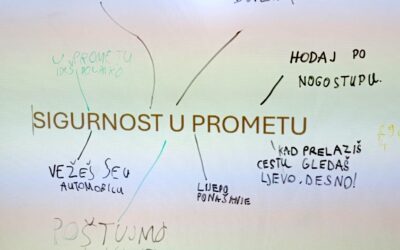 U PROMETU
HODAJ PO
NOGOSTUPU.
SIGURNOST U PROMETU
VEŽEŠ SE U
AUTOMOBILU
LIJEPO
PONAŠANJE
KAD PRELAZIŠ
CESTU GLEDAŠ
LJEVO. DESNO!
POŠTUJMO